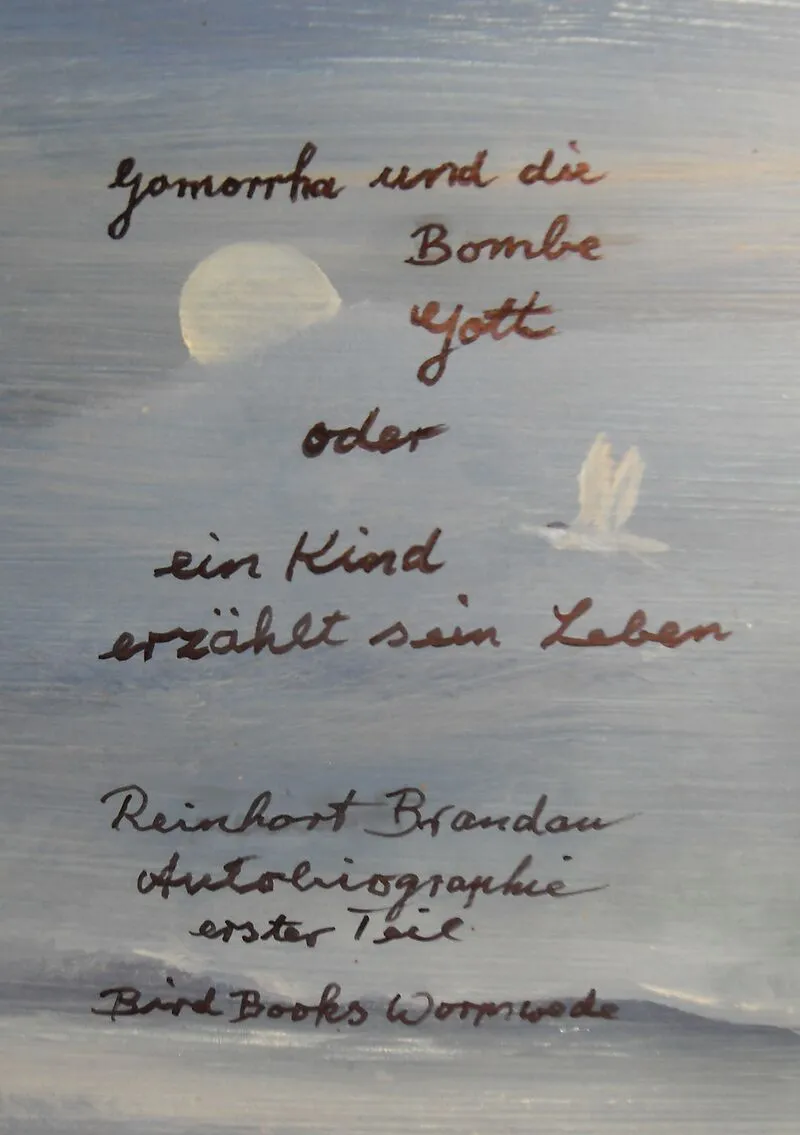 Gomorrha und die
Bombe
Gott
oder
ein Kind
erzählt sein Leben
Reinhart Brandau
Autobiographie
erster Teil
Bird Books Worpswede